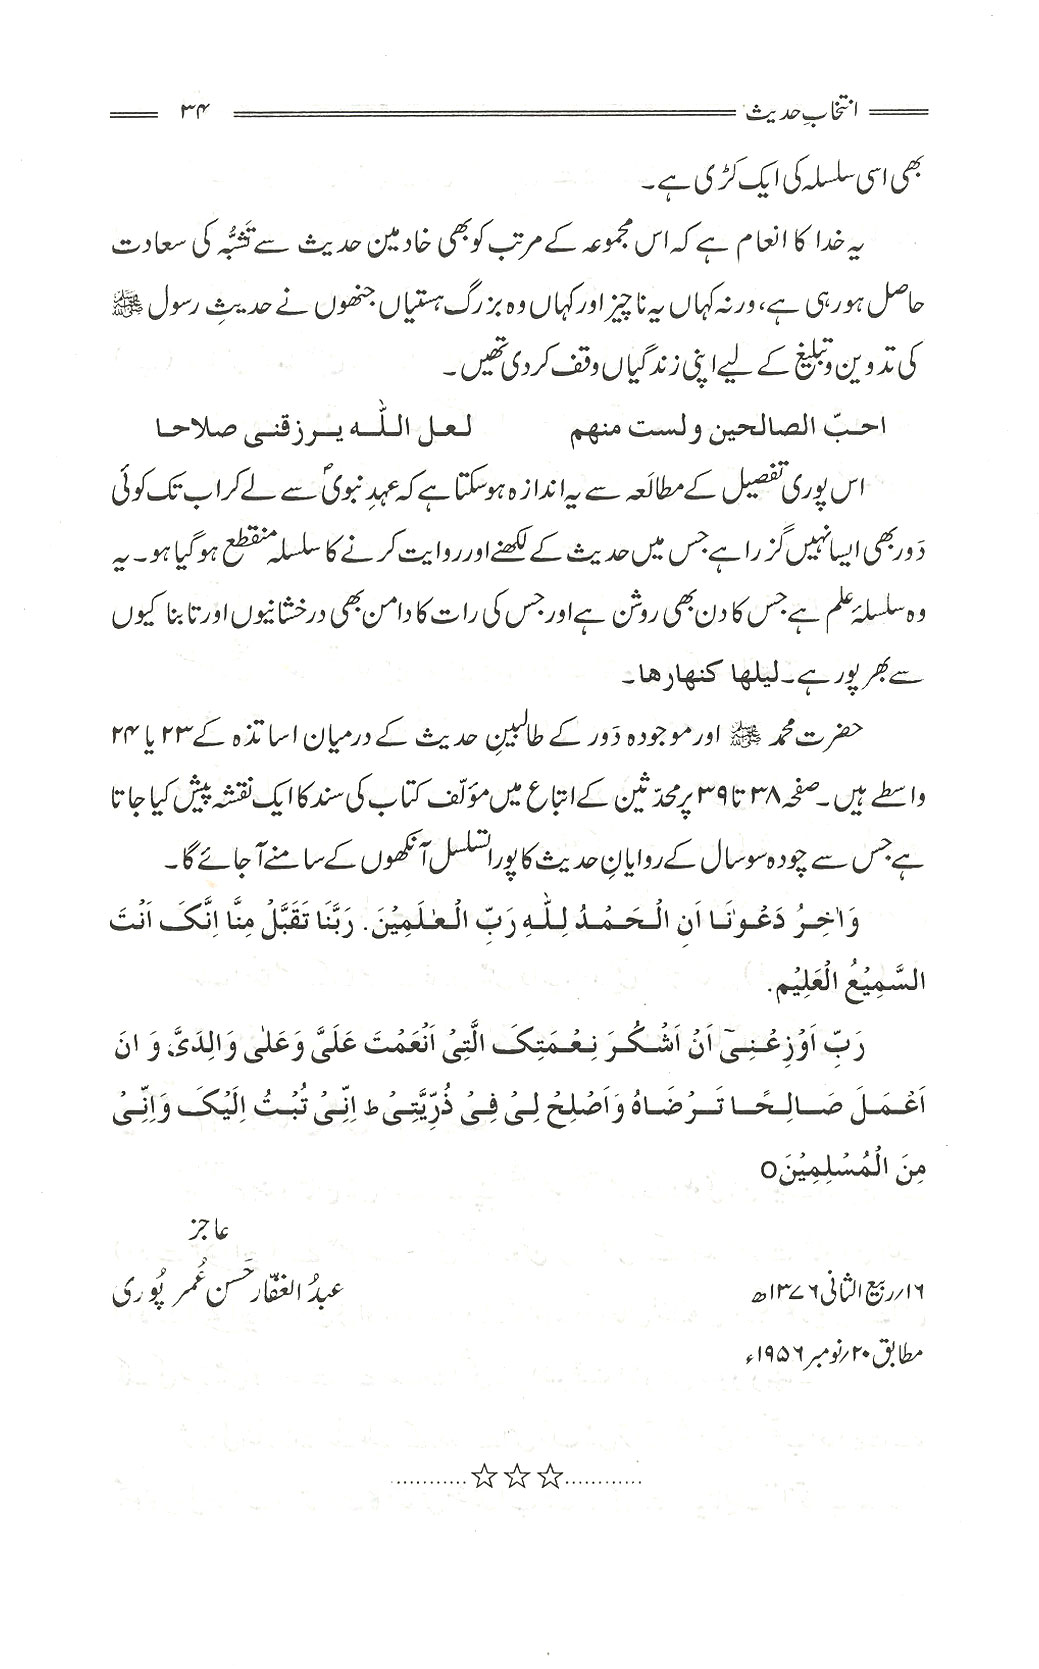 انتخابِ حدیث ۳۴
بھی اسی سلسلہ کی ایک کڑی ہے۔
یہ خدا کا انعام ہے کہ اس مجموعہ کے مرتب کو بھی خادمین حدیث سے تَشَبُّہ کی سعادت
حاصل ہو رہی ہے، ورنہ کہاں یہ ناچیز اور کہاں وہ بزرگ ہستیاں جنھوں نے حدیثِ رسول ﷺ
کی تدوین و تبلیغ کے لیے اپنی زندگیاں وقف کر دی تھیں۔
احبّ الصالحین ولست منھم لعل اللّٰہ یرزقنی صلاحا
اس پوری تفصیل کے مطالَعہ سے یہ اندازہ ہو سکتا ہے کہ عہدِ نبویؐ سے لے کر اب تک کوئی
دَور بھی ایسا نہیں گزرا ہے جس میں حدیث کے لکھنے اور روایت کرنے کا سلسلہ منقطع ہو گیا ہو۔ یہ
وہ سلسلۂ علم ہے جس کا دن بھی روشن ہے اور جس کی رات کا دامن بھی درخشانیوں اور تابنا کیوں
سے بھر پور ہے۔ لیلھا کنھارھا۔
حضرت محمد ﷺ اور موجودہ دَور کے طالبینِ حدیث کے درمیان اساتذہ کے ۲۳ یا ۲۴
واسطے ہیں۔ صفحہ ۳۸ تا ۳۹ پر محدّثین کے اتباع میں مؤلّف کتاب کی سند کا ایک نقشہ پیش کیا جاتا
ہے جس سے چودہ سو سال کے روایانِ حدیث کا پورا تسلسل آنکھوں کے سامنے آ جائے گا۔
وَاٰخِرُ دَعْوٰنَا اَنِ الْحَمْدُ لِلّٰہِ رَبِّ الْعٰلَمِیْنَ. رَبَّنَا تَقَبَّلْ مِنَّا اِنَّکَ اَنْتَ
السَّمِیْعُ الْعَلِیْم.
رَبِّ اَوْزِعْنِیْٓ اَنْ اَشْکُرَ نِعْمَتِکَ الَّتِیْ اَنْعَمْتَ عَلَیَّ وَعَلٰی وَالِدَیَّ وَ انَ
اَعْمَلَ صَالِحًا تَرْضَاہُ وَاَصْلِحْ لِیْ فِیْ ذُرِّیَّتِیْ ط اِنِّیْ تُبْتُ اِلَیْکَ وَاِنِّیْ
مِنَ الْمُسْلِمِیْنَ o
عاجز
۱۶؍ربیع الثانی ۱۳۷۶ھ عبدُ الغفّار حَسن عُمر پُوری
مطابق ۲۰؍نومبر ۱۹۵۶ء